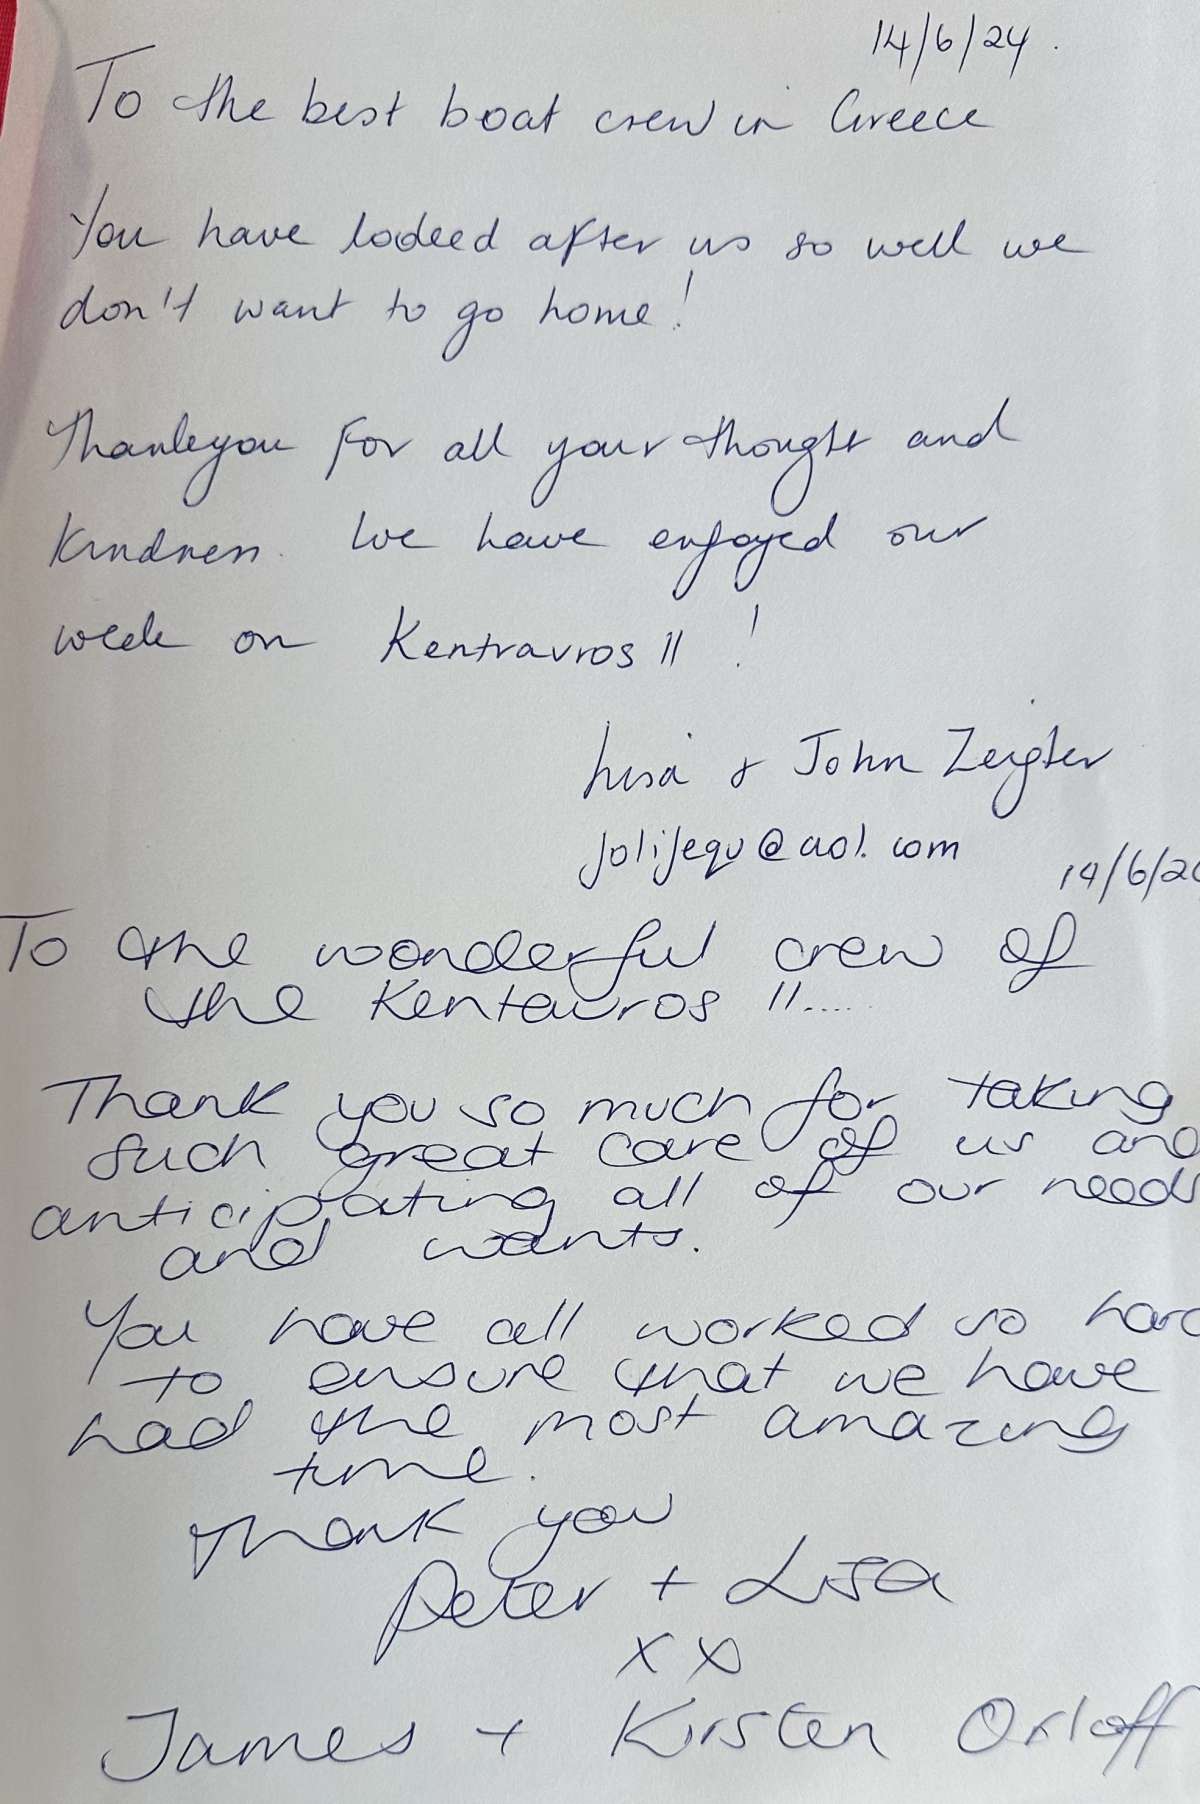 14/6/24.
To the best boat crew in Greece
You have looked after us so well we
don't want to go home!
Thankyou for all your thought and
kindness. We have enjoyed our
week on Kentravros II !
Lisa & John Zeigler
@aol.com
14/6/2
To the wonderful crew of
the Kentauros II....
Thank you so much for taking
such great care of us and
anticipating all of our needs
and wants.
You have all worked so hard
to ensure that we have
had the most amazing
time.
Thank you
Peter + Lisa
x x
James + Kirsten Orloff